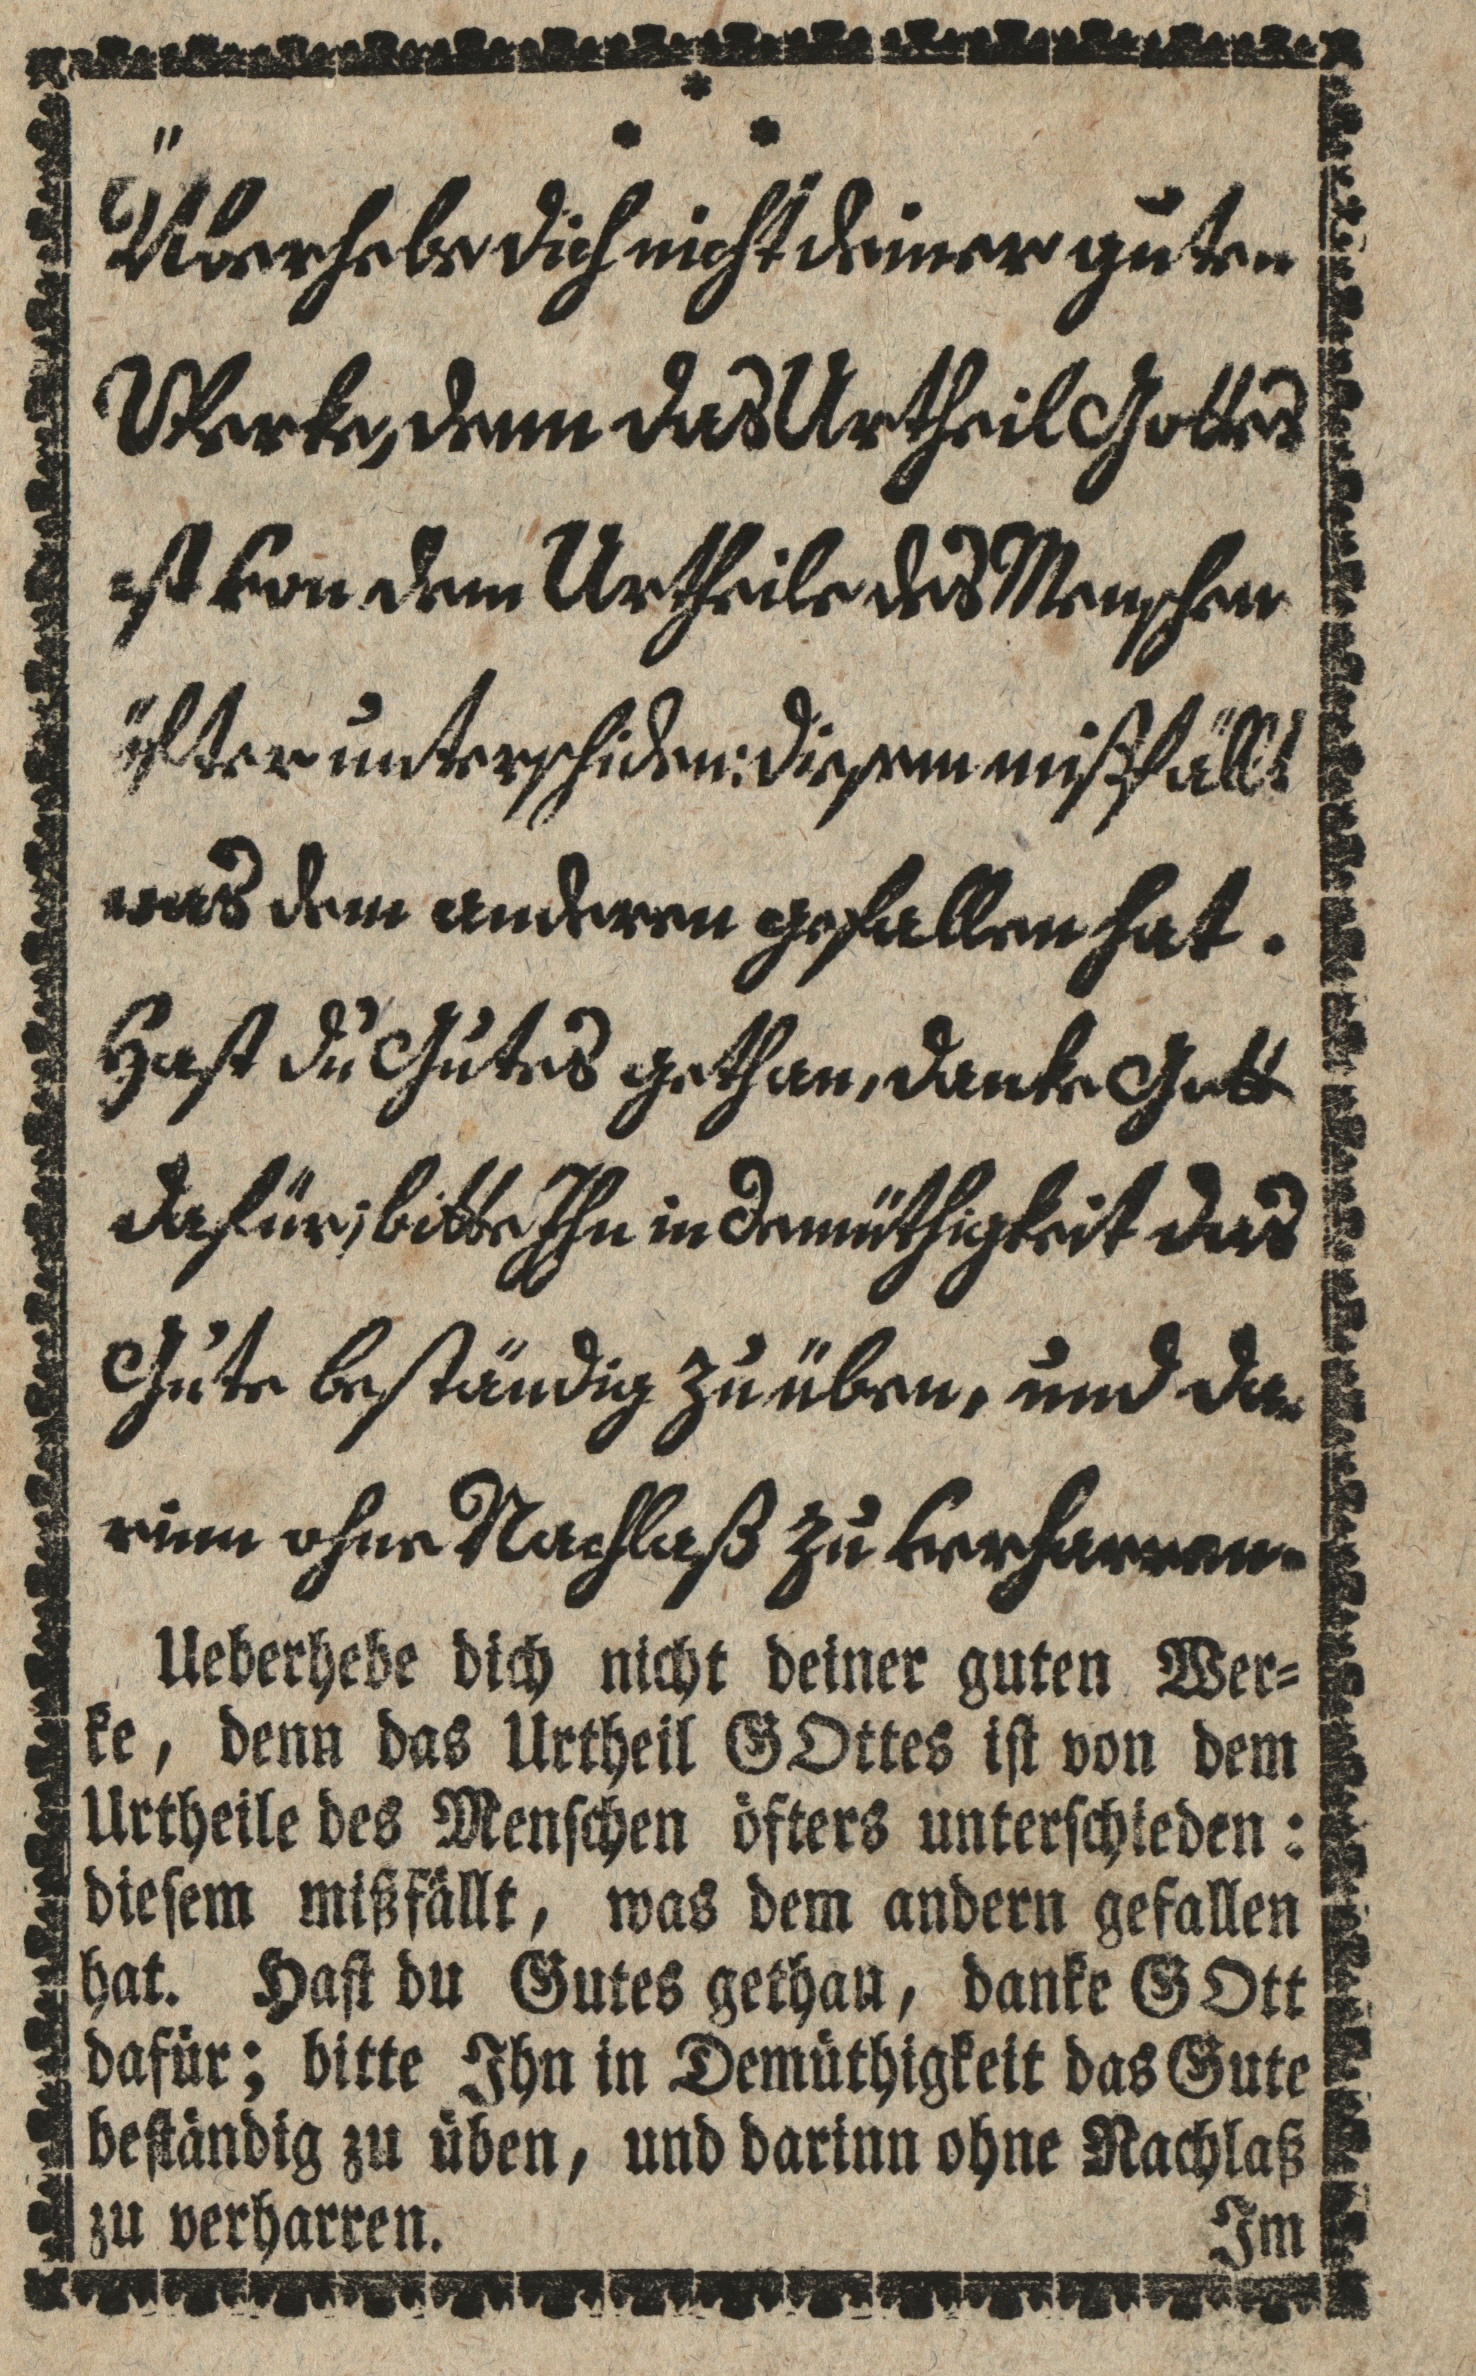 Überhebe dich nicht deiner guten
Werke, denn das Urtheil Gottes
ist von dem Urtheile des Menschen
öfter unterschiden: diesem mißfällt
was dem anderen gefallen hat.
Hast du Gutes gethan, danke Gott
dafür; bitte Ihn in Demüthigkeit das
Gute beständig zu üben, und da-
rinn ohne Nachlaß zu verharren.
Ueberhebe dich nicht deiner guten Wer-
ke, denn das Urtheil GOttes ist von dem
Urtheile des Menschen öfters unterschieden:
diesem mißfällt, was dem andern gefallen
hat. Hast du Gutes gethan, danke GOtt
dafür; bitte Ihn in Demüthigkeit das Gute
beständig zu üben, und darinn ohne Nachlaß
zu verharren. Im